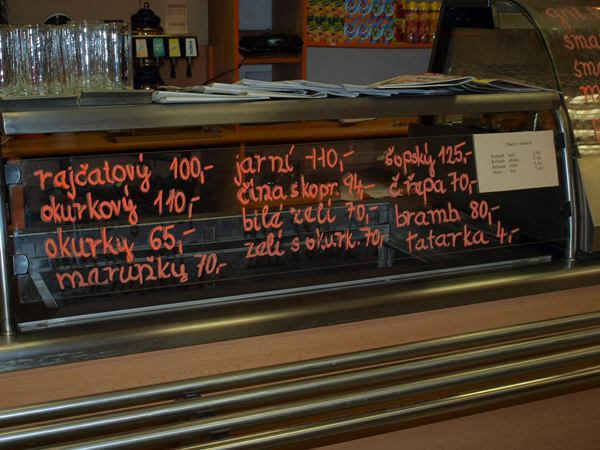 rajčatový 100,-
okurkový 110,-
okurky 65,-
marušky 70,-
jarní 110,-
čína s kopr. 94,-
bílé zelí 70,-
zelí s okurk. 70,-
šopský 125,-
č. řapa 70,-
bramb. 80,-
tatarka 4,-